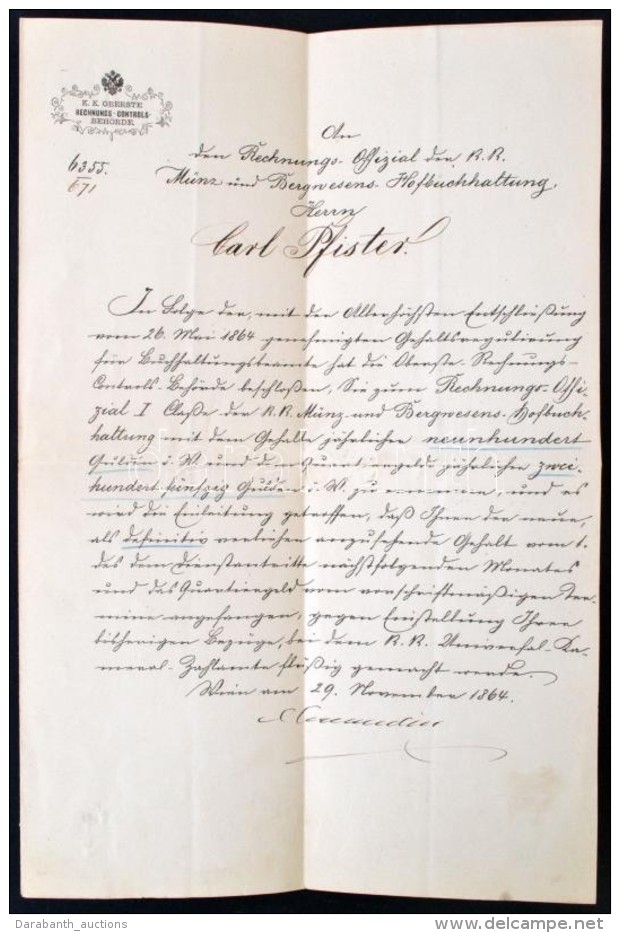 K. K. OBERSTE
RECHNUNGS-CONTROLS-
BEHÖRDE.
6355.
671
An
den Rechnungs-Offizial der K. K.
Münz und Bergwesens-Hofbuchhaltung,
Herrn
Carl Pfister.
In Folge der, mit der Allerhöchsten Entschließung
vom 26. Mai 1864 genehmigten Gehaltsregulirung
für Buchhaltungsbeamte hat die Oberste Rechnungs-
Controls-Behörde beschloßen, Sie zum Rechnungs-Offi-
zial I Claße der K. K. Münz- und Bergwesens-Hofbuch-
haltung mit dem Gehalte jährlicher neunhundert
Gulden ö. W. und dem Quartiergelde jährlicher zwei-
hundert fünfzig Gulden ö. W. zu ernennen, und es
wird die Einleitung getroffen, daß Ihnen der neue,
als definitiv verliehen anzusehende Gehalt vom 1.
des dem Dienstantritte nächstfolgenden Monates
und das Quartiergeld vom vorschriftmäßigen Ter-
mine angefangen, gegen Einstellung Ihrer
bisherigen Bezüge, bei dem K. K. Universal-Ka-
meral-Zahlamte flüßig gemacht werde.
Wien am 29. November 1864.
Darabanth_auctions
www.delcampe.net